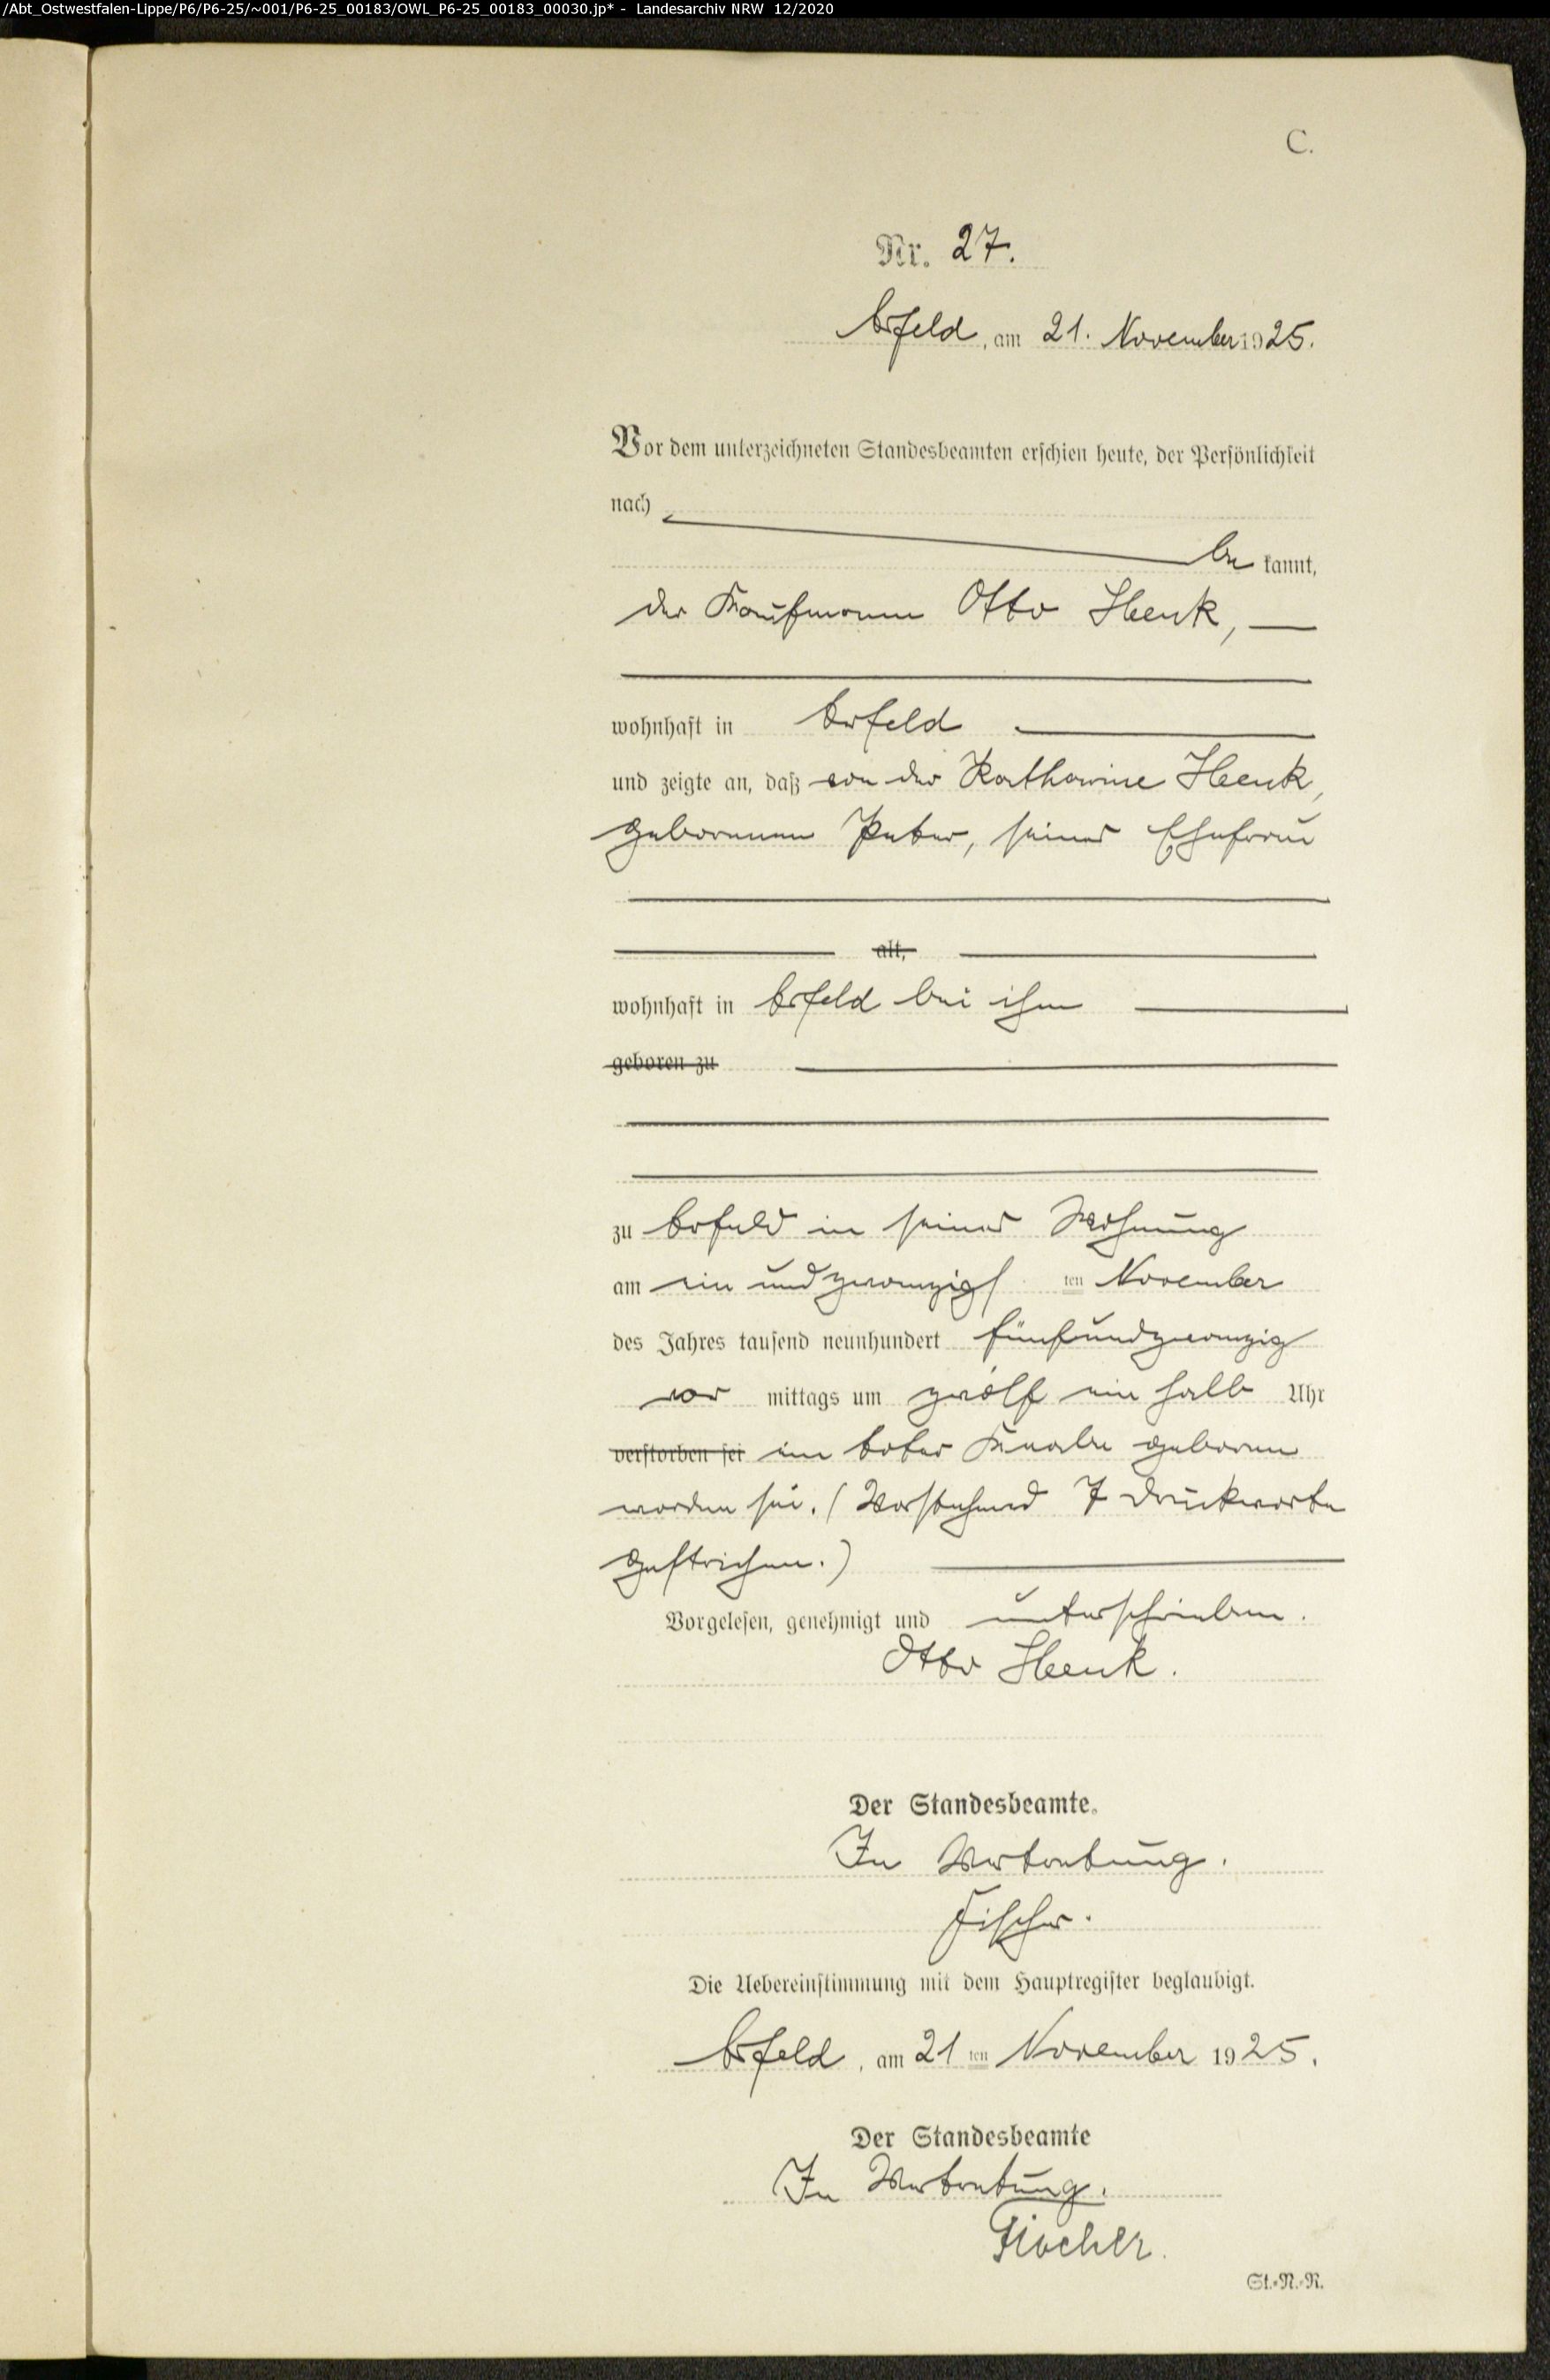 /Abt_Ostwestfalen-Lippe/P6/P6-25/~001/P6-25_00183/OWL_P6-25_00183_00030.jp* - Landesarchiv NRW 12/2020
C.
Nr. 27.
Arfeld, am 21. November 1925.
Vor dem unterzeichneten Standesbeamten erschien heute, der Persönlichkeit
nach
be kannt,
der Kaufmann Otto Henk,
wohnhaft in Arfeld
und zeigte an, daß von der Katharine Henk,
geborenen Peter, seiner Ehefrau
alt,
wohnhaft in Arfeld bei ihm
geboren zu
zu Arfeld in seiner Wohnung
am ein und zwanzigs ten November
des Jahres tausend neunhundert fünfundzwanzig
vor mittags um zwölf ein halb Uhr
verstorben sei ein toter Knabe geboren
worden sei. (Vorstehend 7 Druckworte
gestrichen.)
Vorgelesen, genehmigt und unterschrieben.
Otto Henk.
Der Standesbeamte.
In Vertretung.
Fischer.
Die Uebereinstimmung mit dem Hauptregister beglaubigt.
Arfeld, am 21 ten November 1925.
Der Standesbeamte
In Vertretung.
Fischer.
St.-N.-R.